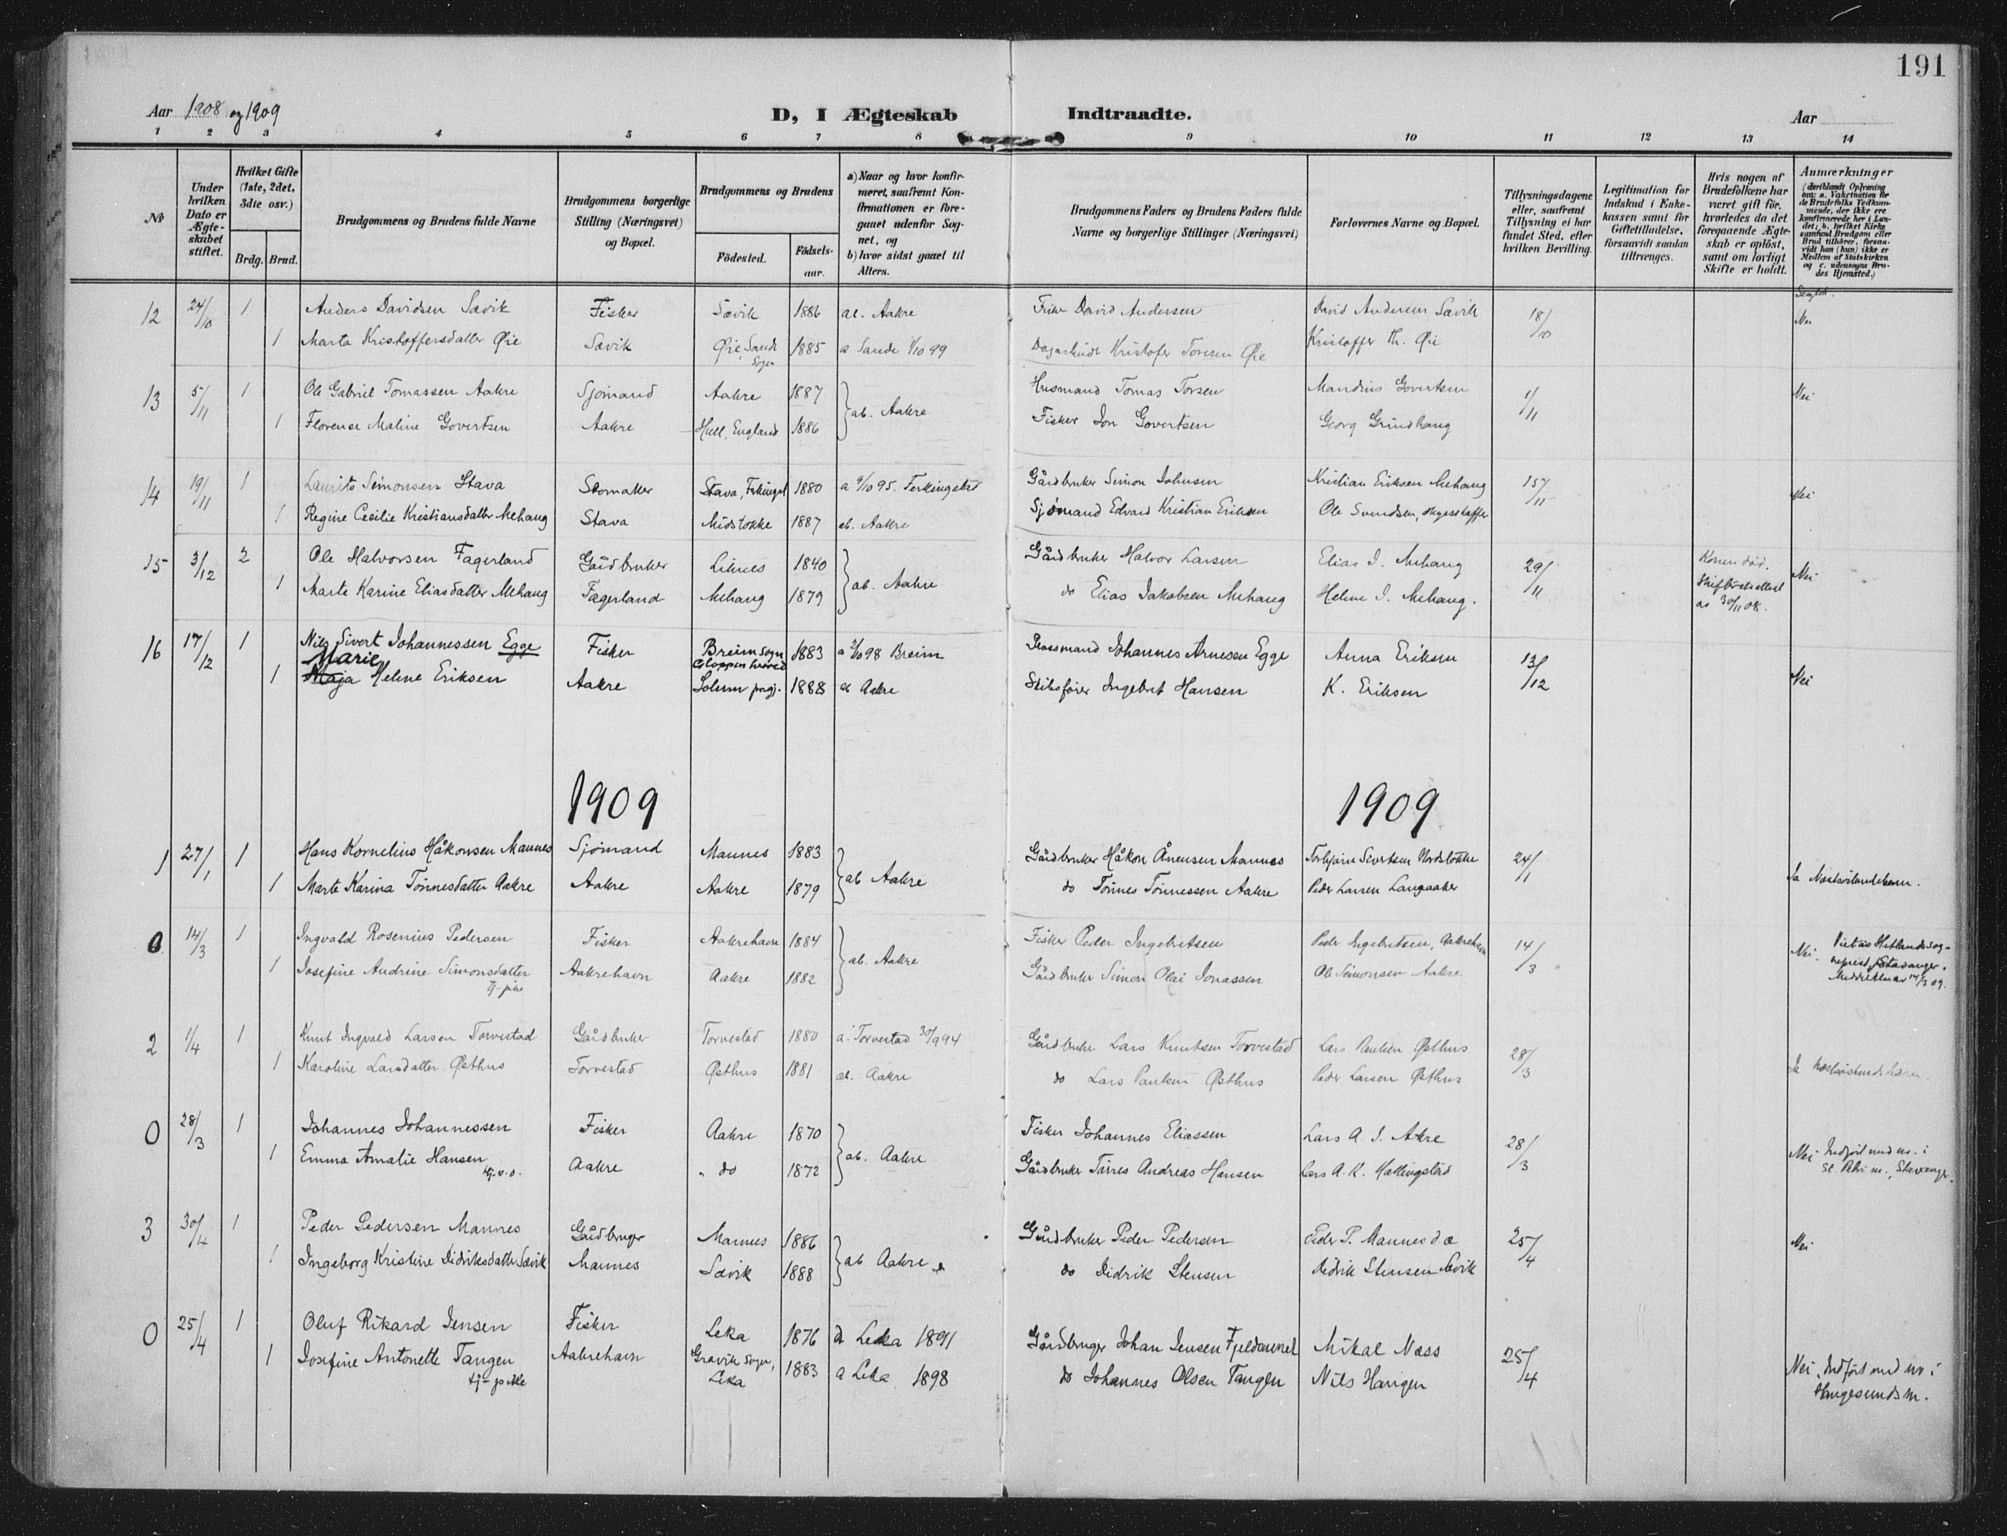 191
Aar 1908 og 1909
D, I Ægteskab Indtraadte.
Aar
1 2 3 4 5 6 7 8 9 10 11 12 13 14
No
Under hvilken Dato er Ægteskabet stiftet.
Hvilket Gifte (1ste, 2det, 3die osv.)
Brdg. Brud.
Brudgommens og Brudens fulde Navne
Brudgommens borgerlige Stilling (Næringsvei) og Bopæl.
Brudgommens og Brudens
Fødested. Fødselsaar.
a) Naar og hvor konfirmeret, saafremt Konfirmationen er foregaaet udenfor Sognet, og
b) hvor sidst gaaet til Alters.
Brudgommens Faders og Brudens Faders fulde Navne og borgerlige Stillinger (Næringsvei)
Forlovernes Navne og Bopæl.
Tillysningsdagene eller, saafremt Tillysning ei har fundet Sted, efter hvilken Bevilling.
Legitimation for Indskud i Enkekassen samt for Giftetilladelse, forsaavidt saadan tiltrænges.
Hvis nogen af Brudefolkene har været gift før, hvorledes da det foregaaende Ægteskab er opløst, samt om lovligt Skifte er holdt.
Anmærkninger
12 24/10 1 Anders Davidsen Sævik Fisker Sævik 1886 ab. Aakre David Andersen David Andersen Sævik 18/10 Nei
1 Marta Kristoffersdatter Øie Sævik Øie, Sande Sogn 1885 a Sande 1/10 99 Kristofer Tonsen Øie Kristoffer Th. Øie
13 5/11 1 Ole Gabriel Tomassen Aakre Sjømand Aakre 1887 ab. Aakre Husmand Tomas Torsen Mandius Govertsen 1/11 Nei
1 Florense Maline Govertsen Aakre Hull, England 1886 Fisker Jon Govertsen Georg Grindhaug
14 19/11 1 Laurits Simonsen Stava Skomaker Stava, Ferkingst 1880 a 9/10 95. Ferkingstad Gårdbruker Simon Johnsen Kristian Eriksen Mehaug 15/11 Nei
1 Regine Cecilie Kristiansdatter Mehaug Stava Midstokke 1887 ab. Aakre Sjømand Edvard Kristian Eriksen Ole Svendsen,
15 3/12 2 Ole Halvorsen Fagerland Gårdbruker Liknes 1840 ab. Aakre Gårdbruker Halvor Larsen Elias J. Mehaug 29/11 Konen død. Nei
1 Marte Karine Eliasdatter Mehaug Fagerland Mehaug 1879 do Elias Jakobsen Mehaug Helene J. Mehaug. 30/11 08.
16 17/12 1 Nils Sivert Johannessen Egge Fisker Breim sogn Gloppen 1883 a 2/10 98 Breim Plassmand Johannes Arnesen Egge Anna Eriksen 13/12
Marie
1 Maja Helene Eriksen Aakre Solum prgj. 1888 ab Aakre Skibsfører Ingebret Hansen K. Eriksen Nei
1909 1909
1 27/1 1 Hans Kornelius Håkonsen Mannes Sjømand Mannes 1883 ab Aakre Gårdbruker Håkon Ånensen Mannes Torbjørn Sivertsen Nordstokke 24/1
1 Marte Karina Tønnesdatter Aakre Aakre Aakre 1879 do Tønnes Tønnessen Aakre Peder Larsen Langaaker
0 14/3 1 Ingvald Rosenius Pedersen Fisker Aakrehavn 1884 ab. Aakre Fisker Peder Ingebretsen Peder Ingebretsen, Aakrehavn 14/3 Nei. Viet i Hetlands sogneprest, Stavanger. 14/3 09.
1 Josefine Andrine Simonsdatter Aakrehavn Aakre 1882 Gårdbruker Simon Olai Jonassen Ole Simonsen Aakre
tj-pike
2 1/4 1 Knut Ingvald Larsen Torvestad Gårdbruker Torvestad 1880 a. Torvestad 30/9 94 Gårdbruker Lars Knutsen Torvestad Lars Paulsen Østhus 28/3
1 Karoline Larsdatter Østhus Torvestad Østhus 1881 ab. Aakre do Lars Paulsen Østhus Peder Larsen Østhus
0 28/3 1 Johannes Johannessen Fisker Aakre 1870 ab. Aakre Fisker Johannes Eliassen Lars A. J. Akre 28/3 Nei Indført med no. i St. Petri m., Stavanger.
1 Emma Amalie Hansen Aakre " do 1872 Gårdbruker Tørres Andreas Hansen Lars A. K. Hallingstad
3 30/4 1 Peder Pedersen Mannes Gårdbruger Mannes 1886 ab Aakre Gårdbruker Peder Pedersen Peder P. Mannes d.æ 25/4 Nei
1 Ingeborg Kristine Didriksdatter Sævik Mannes Sævik 1888 do Didrik Stensen Didrik Stensen Sævik
0 25/4 1 Oluf Rikard Jensen Fisker Leka 1876 a Leka 1891 Gårdbruger Johan Jensen Mikal Næss 25/4 Nei, Indført med no i Haugesunds m.
1 Josefine Antonette Tangen Aakrehavn Gravik Sogn, Leka 1883 a Leka 1898 do Johannes Olsen Tangen Nils Haugen
tj-pike